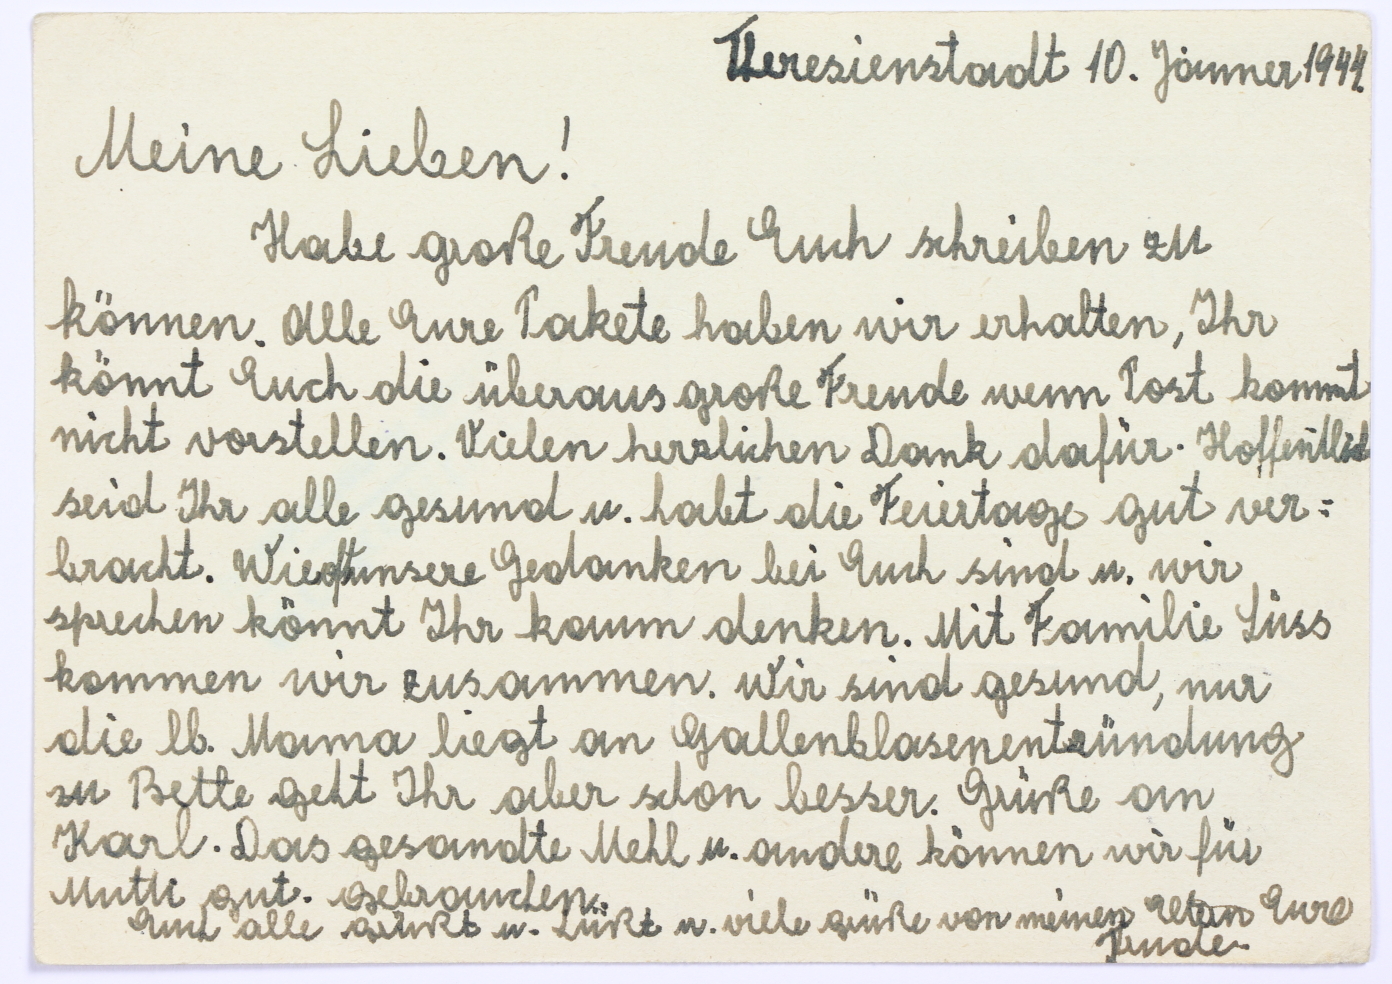 Theresienstadt 10. Jänner 1944.
Meine Lieben!
Habe große Freude Euch schreiben zu
können. Alle Eure Pakete haben wir erhalten, Ihr
könnt Euch die überaus große Freude wenn Post kommt
nicht vorstellen. Vielen herzlichen Dank dafür. Hoffentlich
seid Ihr alle gesund u. habt die Feiertage gut ver=
bracht. Wie oft unsere Gedanken bei Euch sind u. wir
sprechen könnt Ihr kaum denken. Mit Familie Süss
kommen wir zusammen. Wir sind gesund, nur
die lb. Mama liegt an Gallenblasenentzündung
zu Bette geht Ihr aber schon besser. Grüße an
Karl. Das gesandte Mehl u. andere können wir für
Mutti gut. gebrauchen.
Euch alle grüßt u. küßt u. viele grüße von meinen Eltern Eure